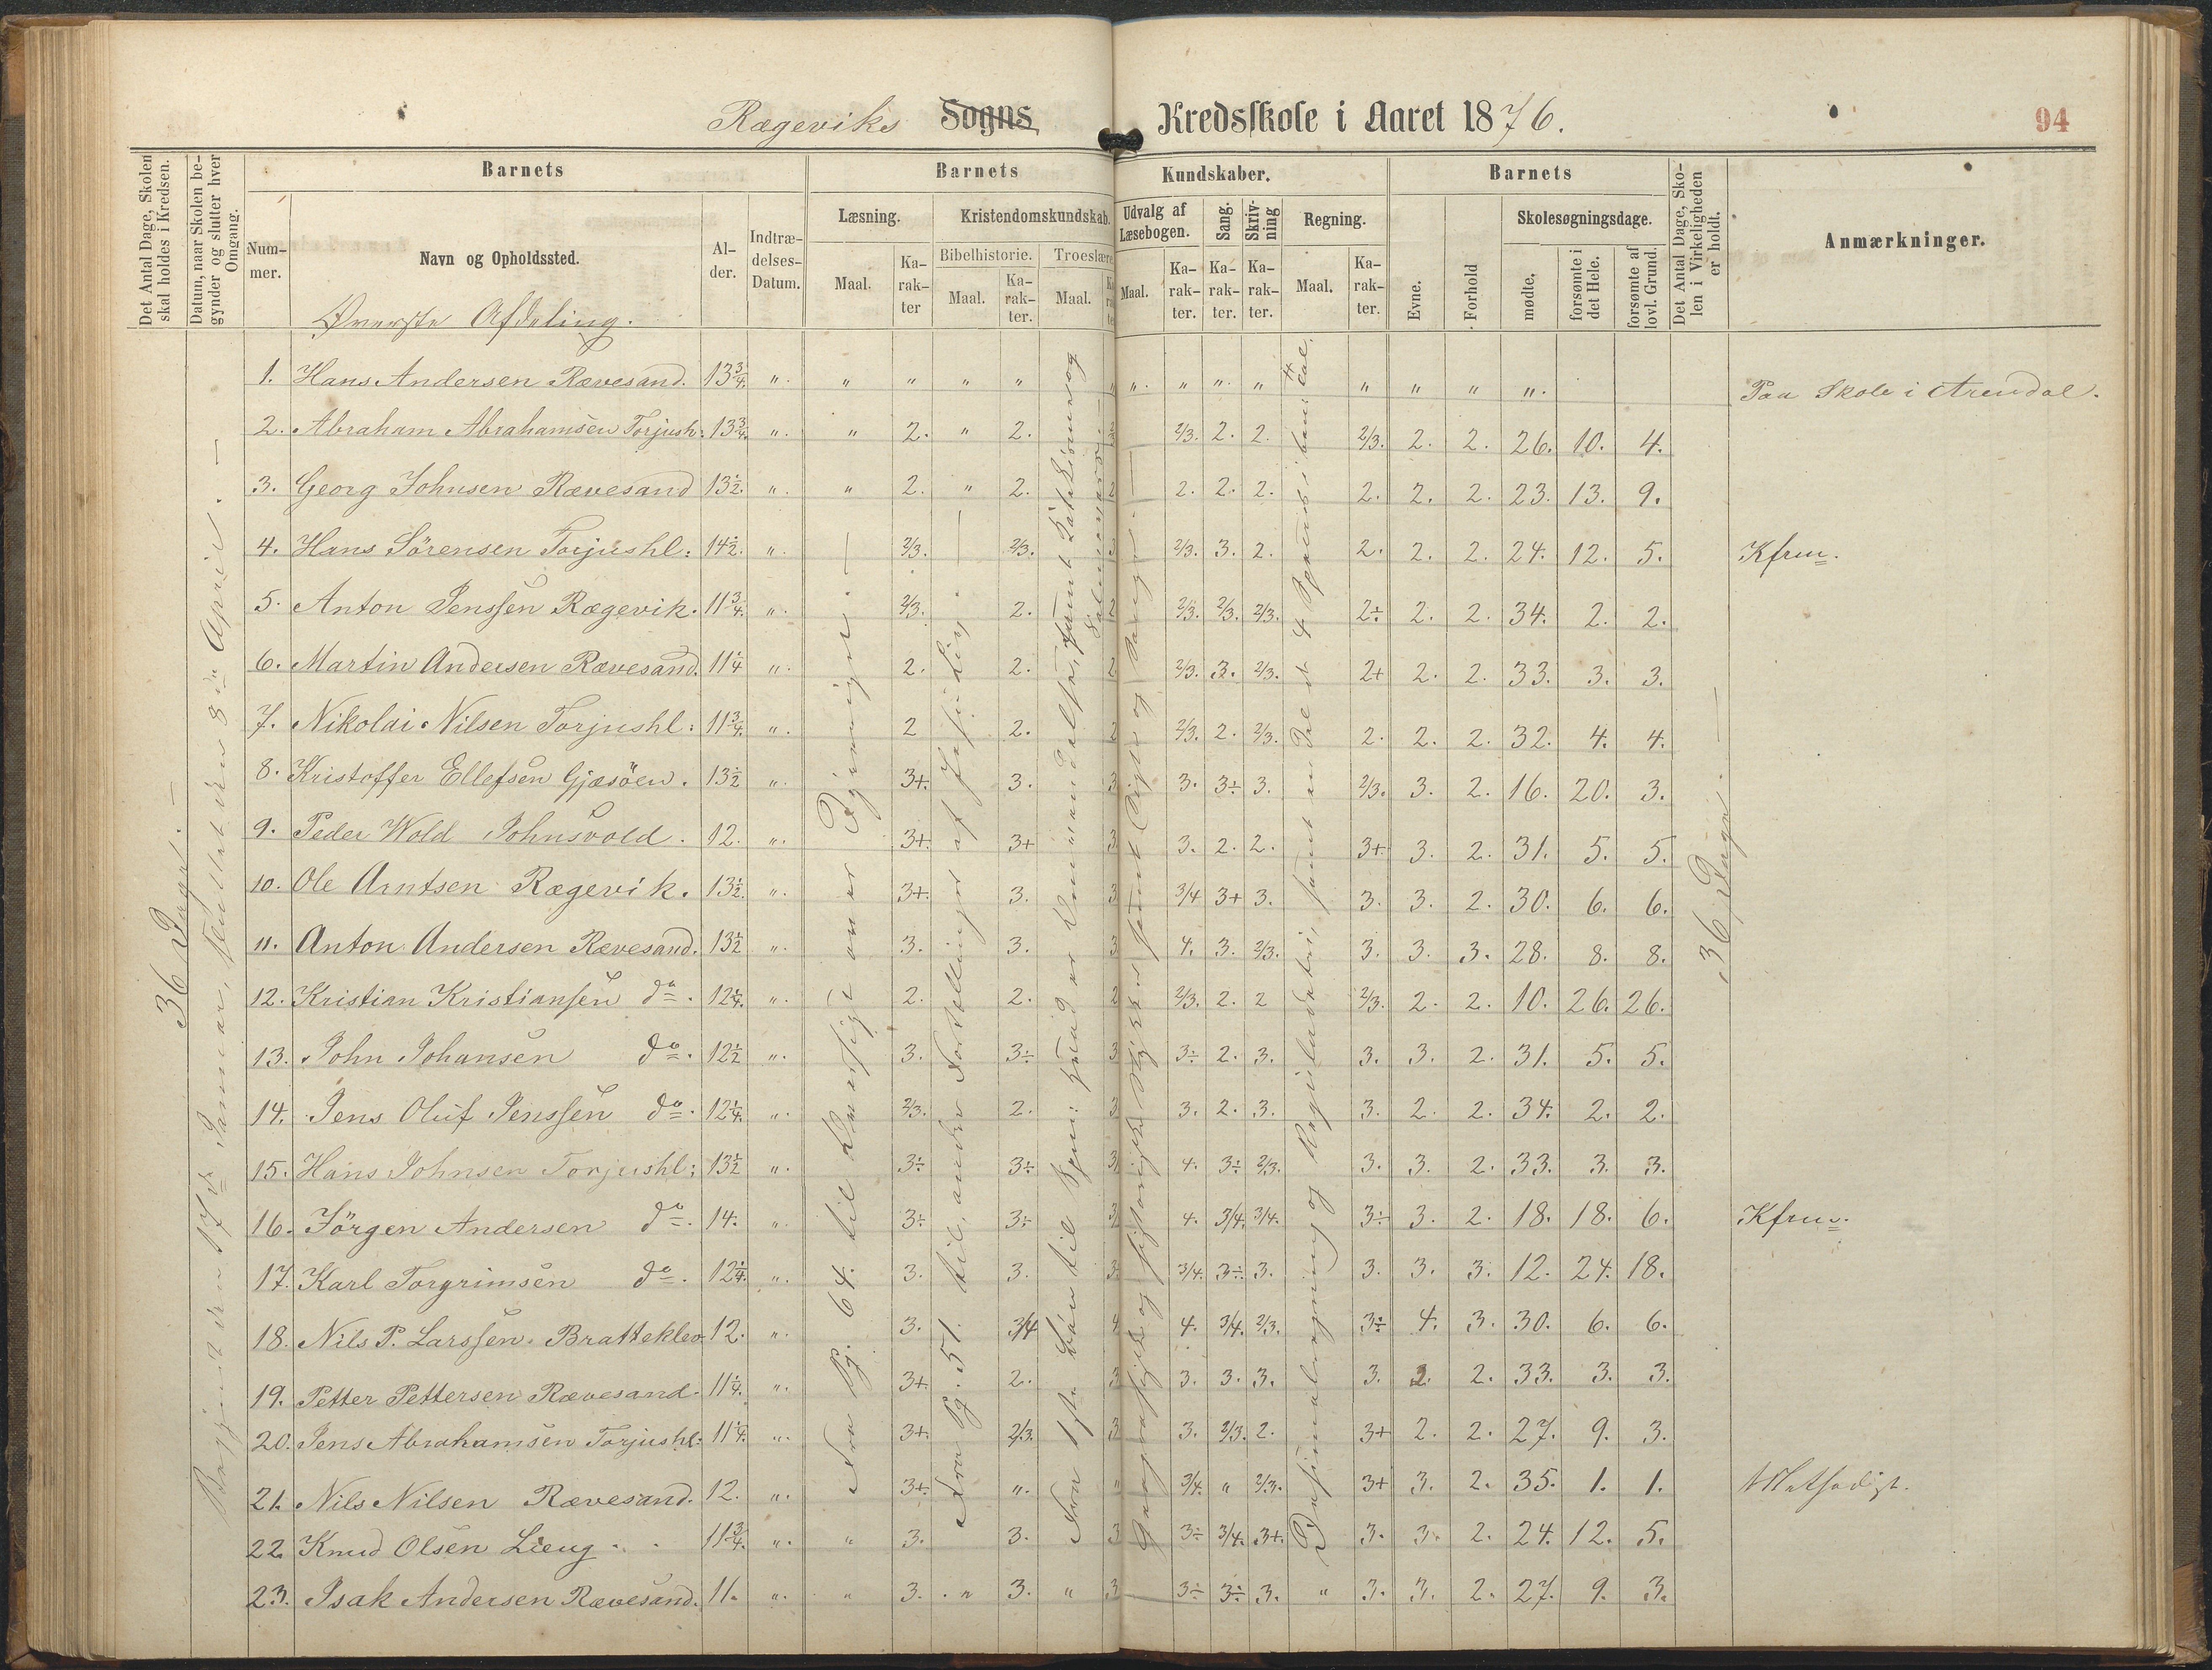 Rægeviks Sogns Kredsskole i Aaret 1876.
94
Det Antal Dage, Skolen skal holdes i Kredsen.
Datum, naar Skolen begynder og slutter hver Omgang.
Barnets
Nummer.
Navn og Opholdssted.
Alder.
Indtrædelses-Datum.
Barnets Kundskaber.
Læsning.
Maal.
Karakter
Kristendomskundskab.
Bibelhistorie.
Maal.
Karakter.
Troeslære
Maal.
Udvalg af Læsebogen.
Maal.
Karakter.
Sang.
Karakter.
Skrivning
Karakter.
Regning.
Maal.
Karakter.
Barnets
Evne.
Forhold
Skolesøgningsdage.
mødte.
forsømte i det Hele.
forsømte af lovl. Grund.
Det Antal Dage, Skolen i Virkeligheden er holdt.
Anmærkninger.
Øverste Afdeling.
36 Dage.
36 Dage.
1. Hans Andersen Rævesand. 13 3/4. " " " " " " " " " " " " " Paa Skole i Arendal.
2. Abraham Abrahamsen Torjush: 13 3/4. " " 2. " 2. 2/3. 2. 2. 2/3. 2. 2. 26. 10. 4.
3. Georg Johnsen Rævesand 13 1/2. " " 2. " 2. 2 2. 2. 2. 2. 2. 2. 23. 13. 9.
4. Hans Sörensen Torjushl: 14 1/2. " 2/3. 2/3. 3 2/3. 3. 2. 2. 2. 2. 24. 12. 5. Kfrm.
5. Anton Jenssen Rægevik. 11 3/4. " 2/3. 2. 2 2/3. 2/3. 2/3. 2÷ 2. 2. 34. 2. 2.
6. Martin Andersen Rævesand. 11 1/4 " 2. 2. 2 2/3. 3. 2/3. 2+ 2. 2. 33. 3. 3.
7. Nikolai Nilsen Torjushl: 11 3/4. " 2 2. 2 2/3. 2. 2/3. 2. 2. 2. 32. 4. 4.
8. Kristoffer Ellefsen Gjæsöen. 13 1/2 " 3+. 3. 3 3. 3÷ 3. 2/3. 3. 2. 16. 20. 3.
9. Peder Wold Johnsvold. 12. " 3+. 3+ 3 3. 2. 2. 3+ 3. 2. 31. 5. 5.
10. Ole Arntsen Rægevik. 13 1/2. " 3+. 3. 3 3/4 3+ 3. 3. 3. 2. 30. 6. 6.
11. Anton Andersen Rævesand. 13 1/2 " 3. 3. 3 4. 3. 2/3. 3. 3. 3. 28. 8. 8.
12. Kristian Kristiansen do. 12 1/4. " 2. 2. 2 2/3. 2. 2 2/3. 2. 2. 10. 26. 26.
13. John Johansen do. 12 1/2 " 3. 3÷ 3 3÷ 2. 3. 3. 3. 2. 31. 5. 5.
14. Jens Oluf Jenssen do. 12 1/4. " 2/3. 2. 3 3. 2. 3. 3. 2. 2. 34. 2. 2.
15. Hans Johnsen Torjushl: 13 1/2 " 3÷ 3÷ 3 4. 3÷ 2/3. 3. 3. 2. 33. 3. 3.
16. Jörgen Andersen do. 14. " 3÷ 3÷ 3 4. 3/4. 3/4. 3÷ 3. 2. 18. 18. 6. Kfrm.
17. Karl Torgrimsen do. 12 1/4. " 3. 3. 3 3/4. 3÷ 3. 3. 3. 3. 12. 24. 18.
18. Nils P. Larssen. Bratteklev 12. " 3. 3/4 4 4. 3/4. 2/3. 3÷ 4. 3. 30. 6. 6.
19. Petter Pettersen Rævesand. 11 1/4. " 3+ 2. 3 3. 3. 3. 3. 2. 2. 33. 3. 3.
20. Jens Abrahamsen Torjushl: 11 1/4. " 3+. 2/3. 3 3. 2/3. 2. 3+ 2. 2. 27. 9. 3.
21. Nils Nilsen Rævesand. 12. " 3+. " " 3/4. " 2/3. 3+ 3. 2. 35. 1. 1.
22. Knud Olsen Lieng. 11 3/4. " " 3. 3. 3 3÷ 3/4. 3+. 3. 3. 2. 24. 12. 5.
23. Isak Andersen Rævesand. 11. " " 3. " 3. " 3 3÷ 3÷ 3. " 3. 3. 2. 27. 9. 3.